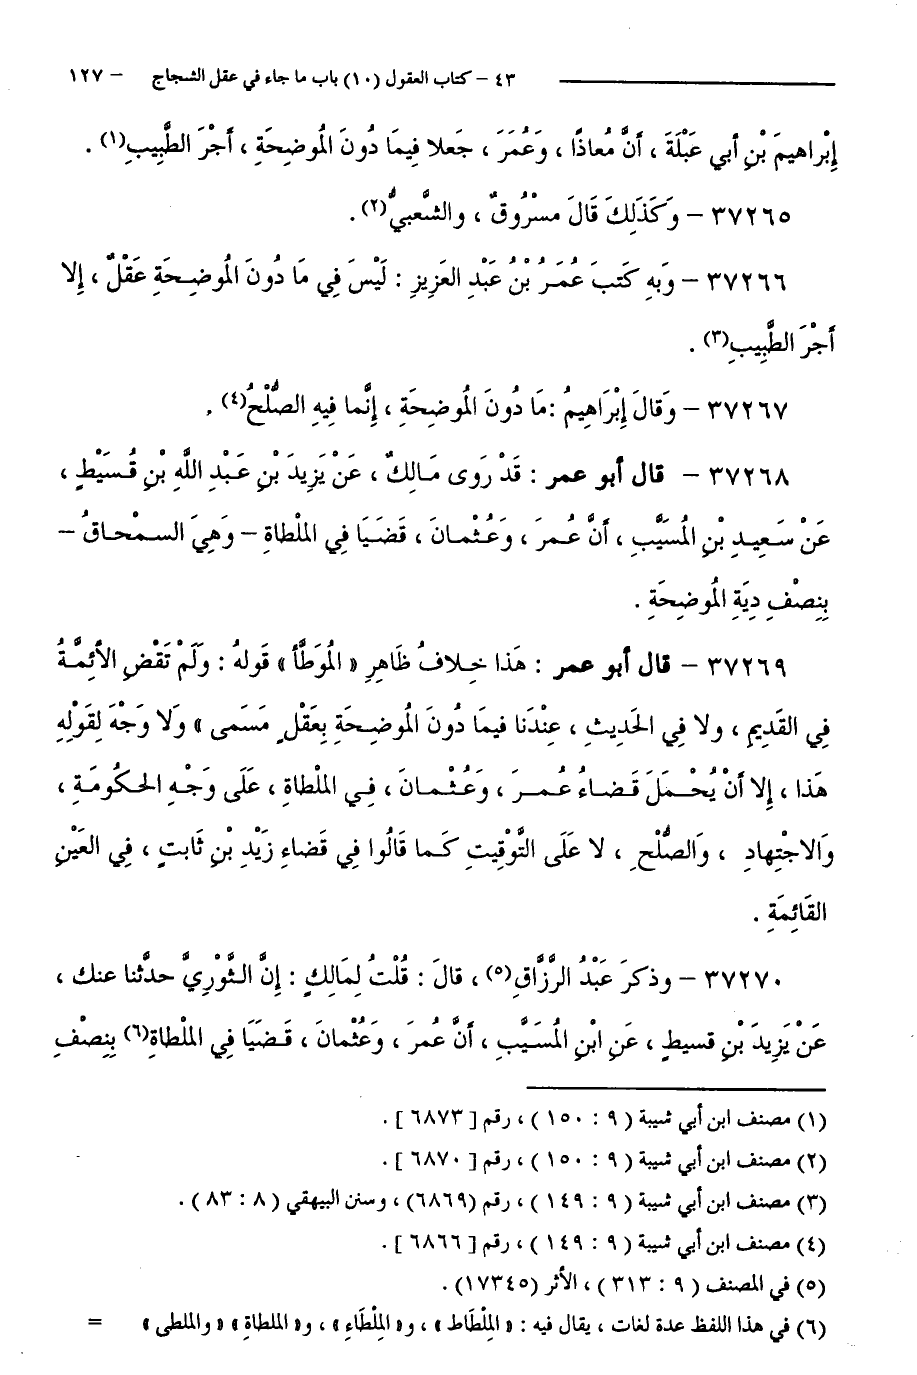 ٤٣ – كتاب العقول (١٠) باب ما جاء في عقل الشجاج – ١٢٧
إِبْراهيمَ بْنِ أبي عَبْلَةَ ، أنَّ مُعاذًا ، وَعُمَرَ ، جَعلا فِيمَا دُونَ المُوضِحَةِ ، أَجْرَ الطَّبِيبِ(١) .
٣٧٢٦٥ – وَكَذَلِكَ قَالَ مسْرُوقٌ ، والشَّعبيُّ(٢).
٣٧٢٦٦ – وَبِهِ كَتبَ عُمَرُ بْنُ عَبْدِ العَزِيزِ : لَيْسَ فِي مَا دُونَ المُوضِحَةِ عَقْلٌ ، إِلا
أجْرَ الطَّبِيبِ(٣) .
٣٧٢٦٧ – وَقالَ إِبْرَاهِيمُ :مَا دُونَ المُوضِحَةِ ، إِنَّما فِيهِ الصُّلْحُ(٤) .
٣٧٢٦٨ – قال أبو عمر : قَدْ رَوى مَالِكٌ ، عَنْ يَزِيدَ بْنِ عَبْدِ اللَّهِ بْنِ قُسَيْطٍ ،
عَنْ سَعِيدِ بْنِ المُسَيَّبِ ، أنَّ عُمَرَ ، وَعُثْمانَ ، قَضَيَا فِي المِلْطاةِ – وَهِيَ السمْحاقُ –
بِنِصْفِ دِيَةِ المُوضِحَةِ .
٣٧٢٦٩ – قال أبو عمر : هَذا خِلافُ ظَاهِرِ « المُوَطَّأ » قَولهُ : وَلَمْ تَقْضِ الأئِمَّةُ
فِي القَدِيمِ ، ولا فِي الحَديثِ ، عِنْدَنا فيمَا دُونَ المُوضِحَةِ بِعَقْلٍ مَسَمى » وَلا وَجْهَ لِقَوْلِهِ
هَذا ، إِلا أنْ يُحْمَلَ قَضاءُ عُمرَ ، وَعُثْمانَ ، فِي المِلْطاةِ ، عَلَى وَجْهِ الحكُومَةِ ،
وَالاجْتِهادِ ، وَالصُّلْحِ ، لا عَلَى التَّوْقِيتِ كَما قَالُوا فِي قَضاءِ زَيْدِ بْنِ ثَابتٍ ، فِي العَيْنِ
القَائِمَةِ .
٣٧٢٧٠ – وذكرَ عَبْدُ الرَّزَّاقِ(٥) ، قالَ : قُلْتُ لِمَالِكٍ : إِنَّ الثَّوْرِيَّ حدَّثَنا عنك ،
عَنْ يَزِيدَ بْنِ قسيطٍ ، عَنِ ابْنِ المُسَيَّبِ ، أنَّ عُمَرَ ، وَعُثْمانَ ، قَضَيَا فِي المِلْطاةِ(٦) بِنِصْفِ
(١) مصنف ابن أبي شيبة ( ٩ : ١٥٠ ) ، رقم [ ٦٨٧٣ ] .
(٢) مصنف ابن أبي شيبة ( ٩ : ١٥٠ ) ، رقم [ ٦٨٧٠ ] .
(٣) مصنف ابن أبي شيبة ( ٩ : ١٤٩ ) ، رقم (٦٨٦٩) ، وسنن البيهقي ( ٨ : ٨٣ ) .
(٤) مصنف ابن أبي شيبة ( ٩ : ١٤٩ ) ، رقم [ ٦٨٦٦ ] .
(٥) في المصنف ( ٩ : ٣١٣ ) ، الأثر (١٧٣٤٥) .
(٦) في هذا اللفظ عدة لغات ، يقال فيه : « المِلْطَاط » ، و« المِلْطَاءِ » ، و« الملطاة » « والملطى » =